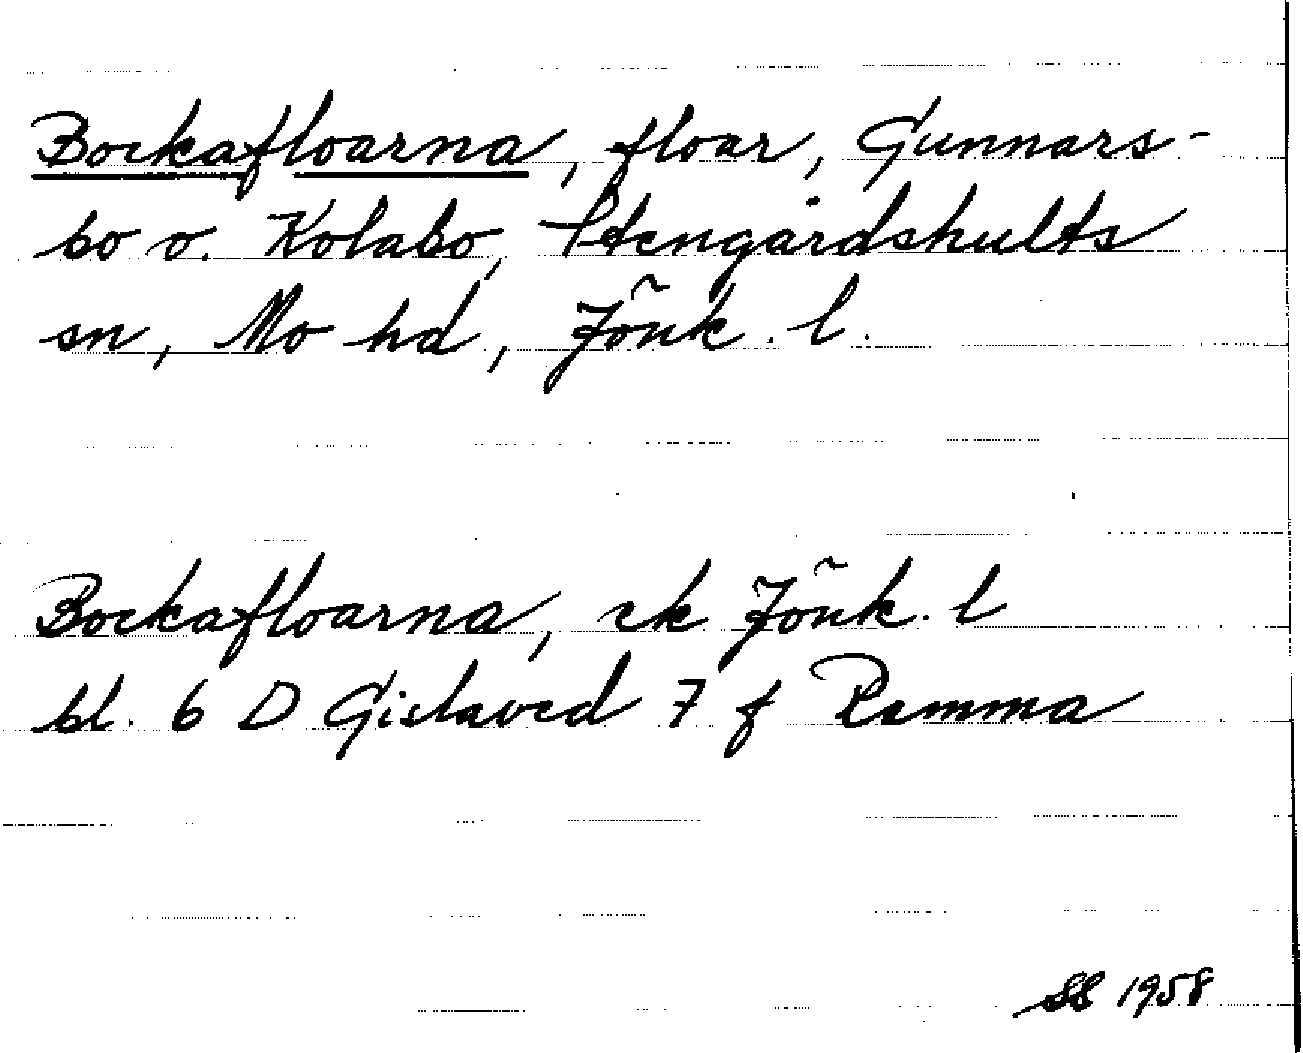 Bockafloarna, floar, Gunnars-
bo o. Kolabo, Stengårdshults
sn, Mo hd, Jönk. l.
Bockafloarna, ek Jönk. l
bl. 6 D Gislaved 7 f Ramma
SS 1958